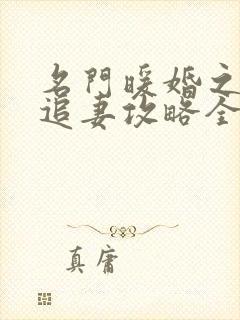 名門暖婚之
追妻攻略全
真庸